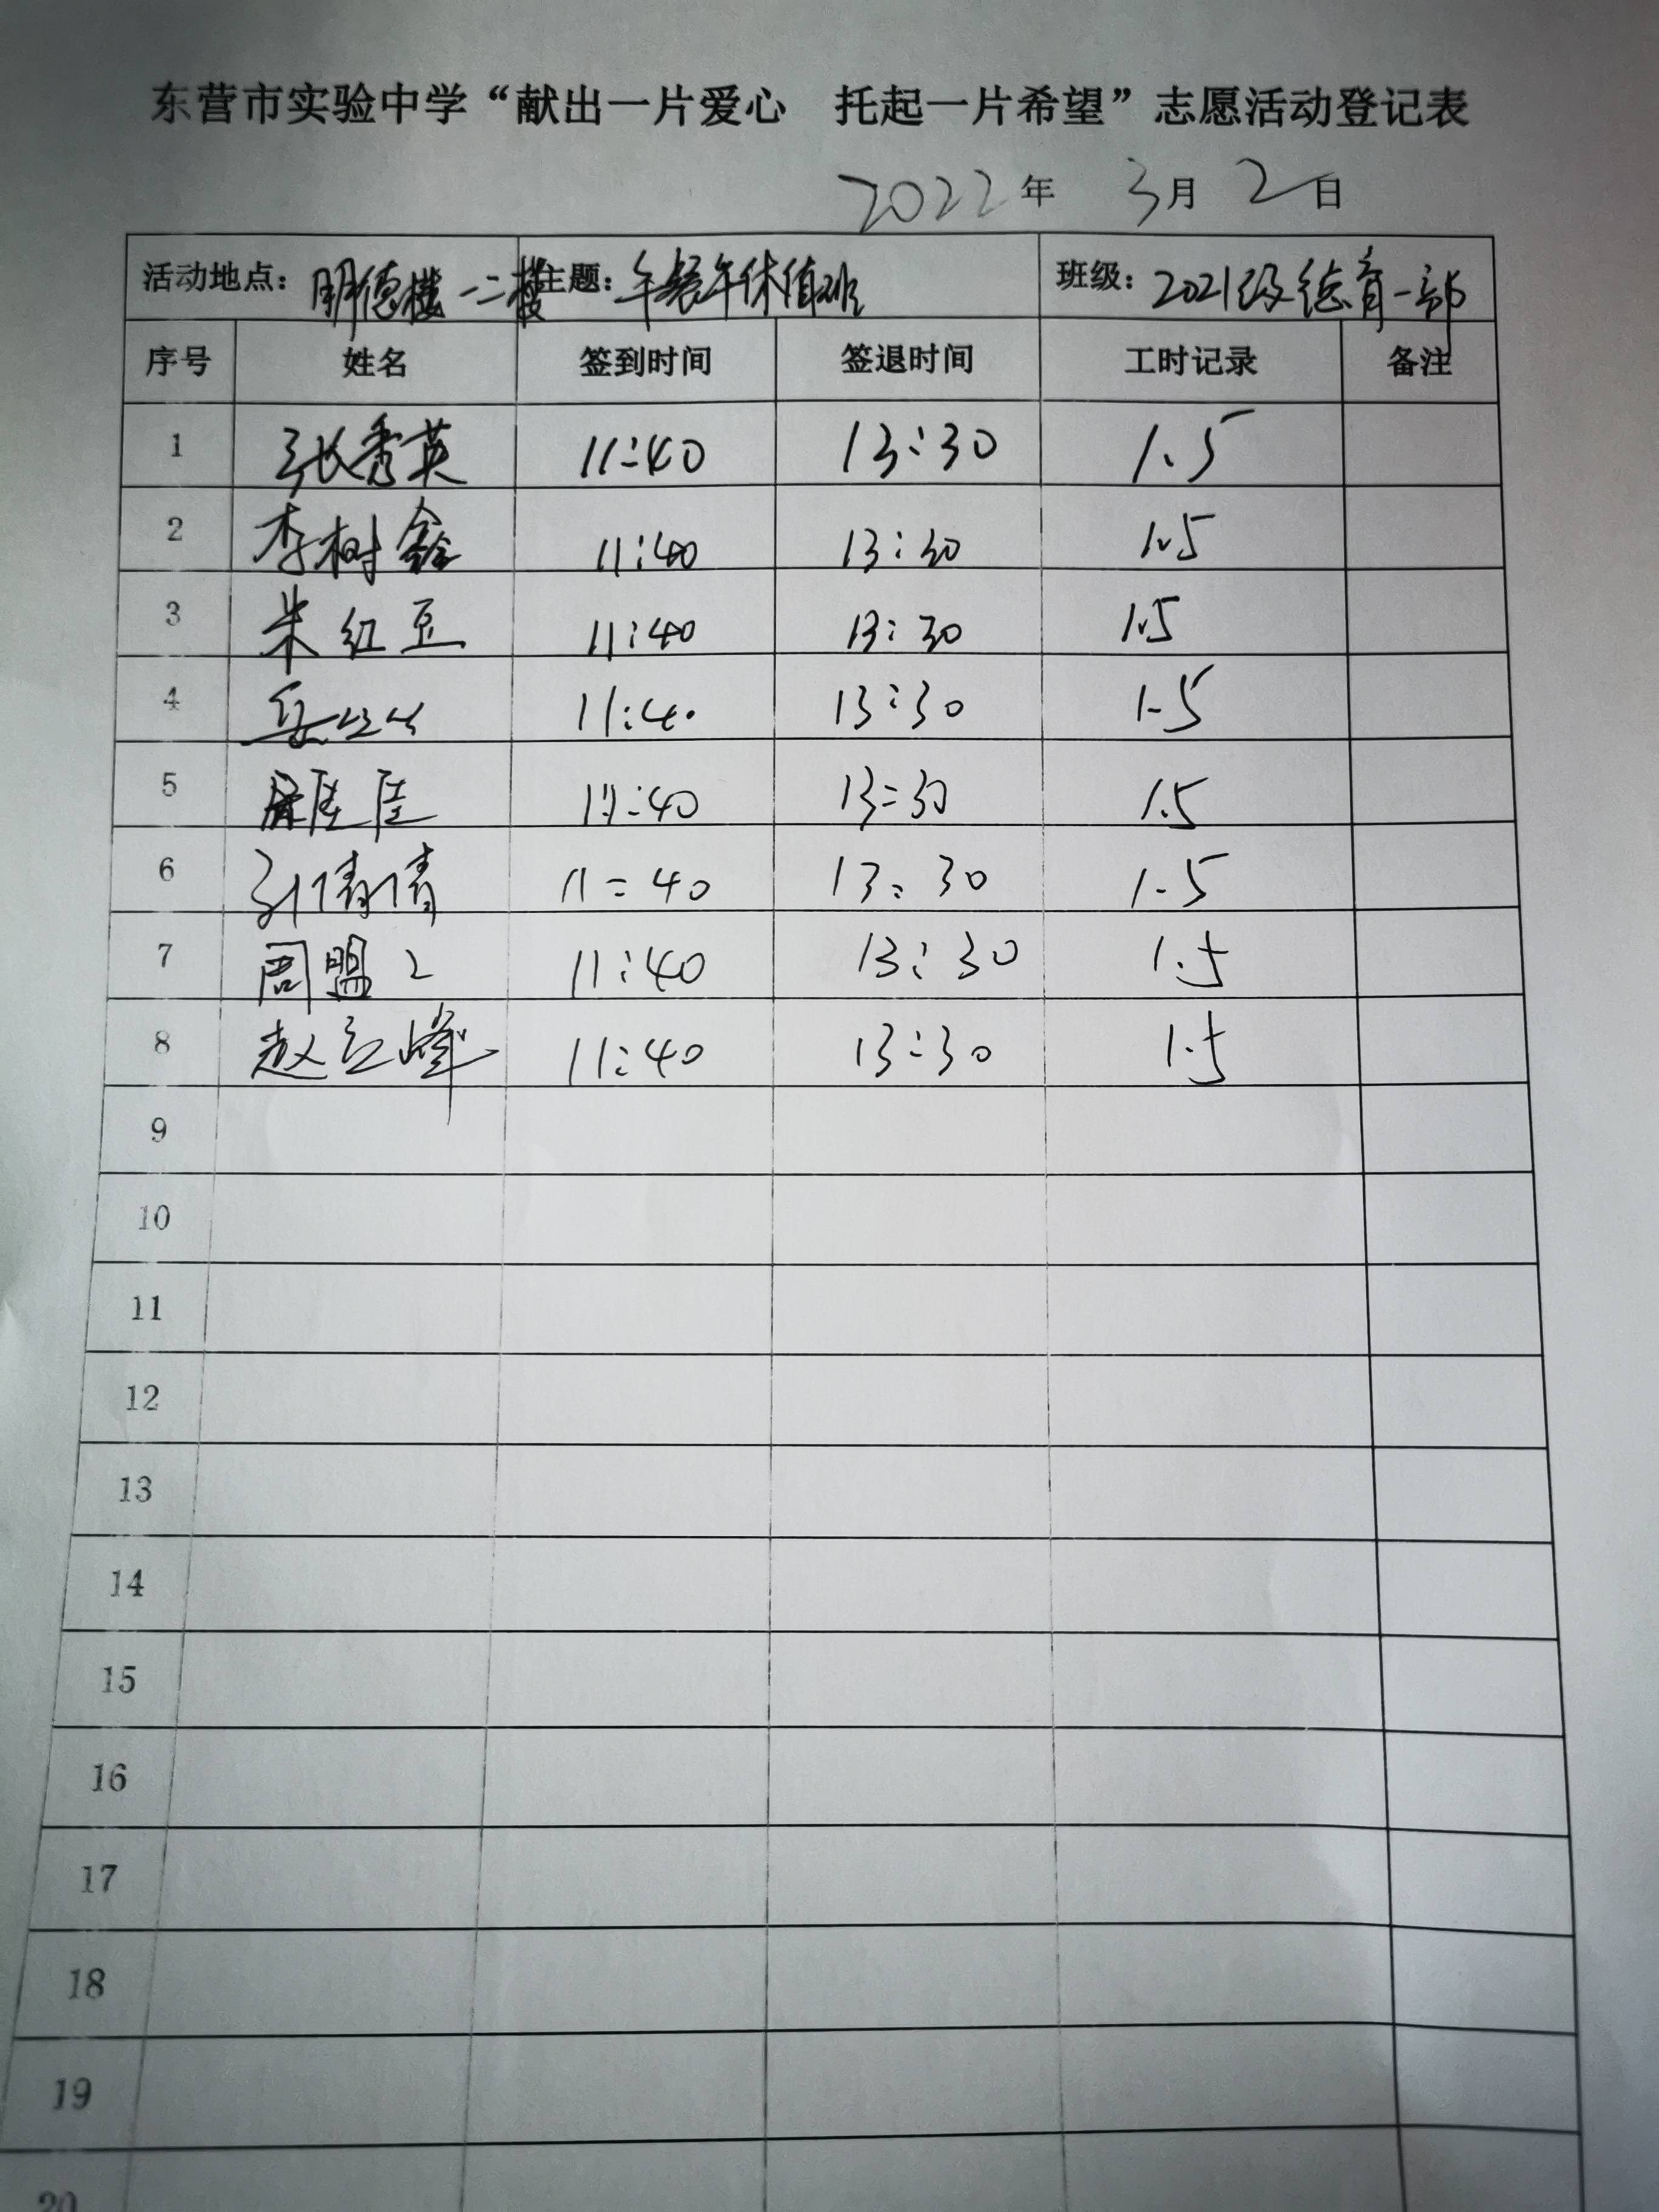 东营市实验中学“献出一片爱心 托起一片希望”志愿活动登记表
2022年 3月 2日
活动地点：明德楼一二楼 主题：午餐午休值班 班级：2021级德育一部
序号 姓名 签到时间 签退时间 工时记录 备注
1 张秀英 11:40 13:30 1.5
2 李树鑫 11:40 13:30 1.5
3 朱红豆 11:40 13:30 1.5
4 11:40 13:30 1.5
5 11:40 13:30 1.5
6 倩倩 11:40 13:30 1.5
7 周盟 11:40 13:30 1.5
8 赵立峰 11:40 13:30 1.5
9
10
11
12
13
14
15
16
17
18
19
20